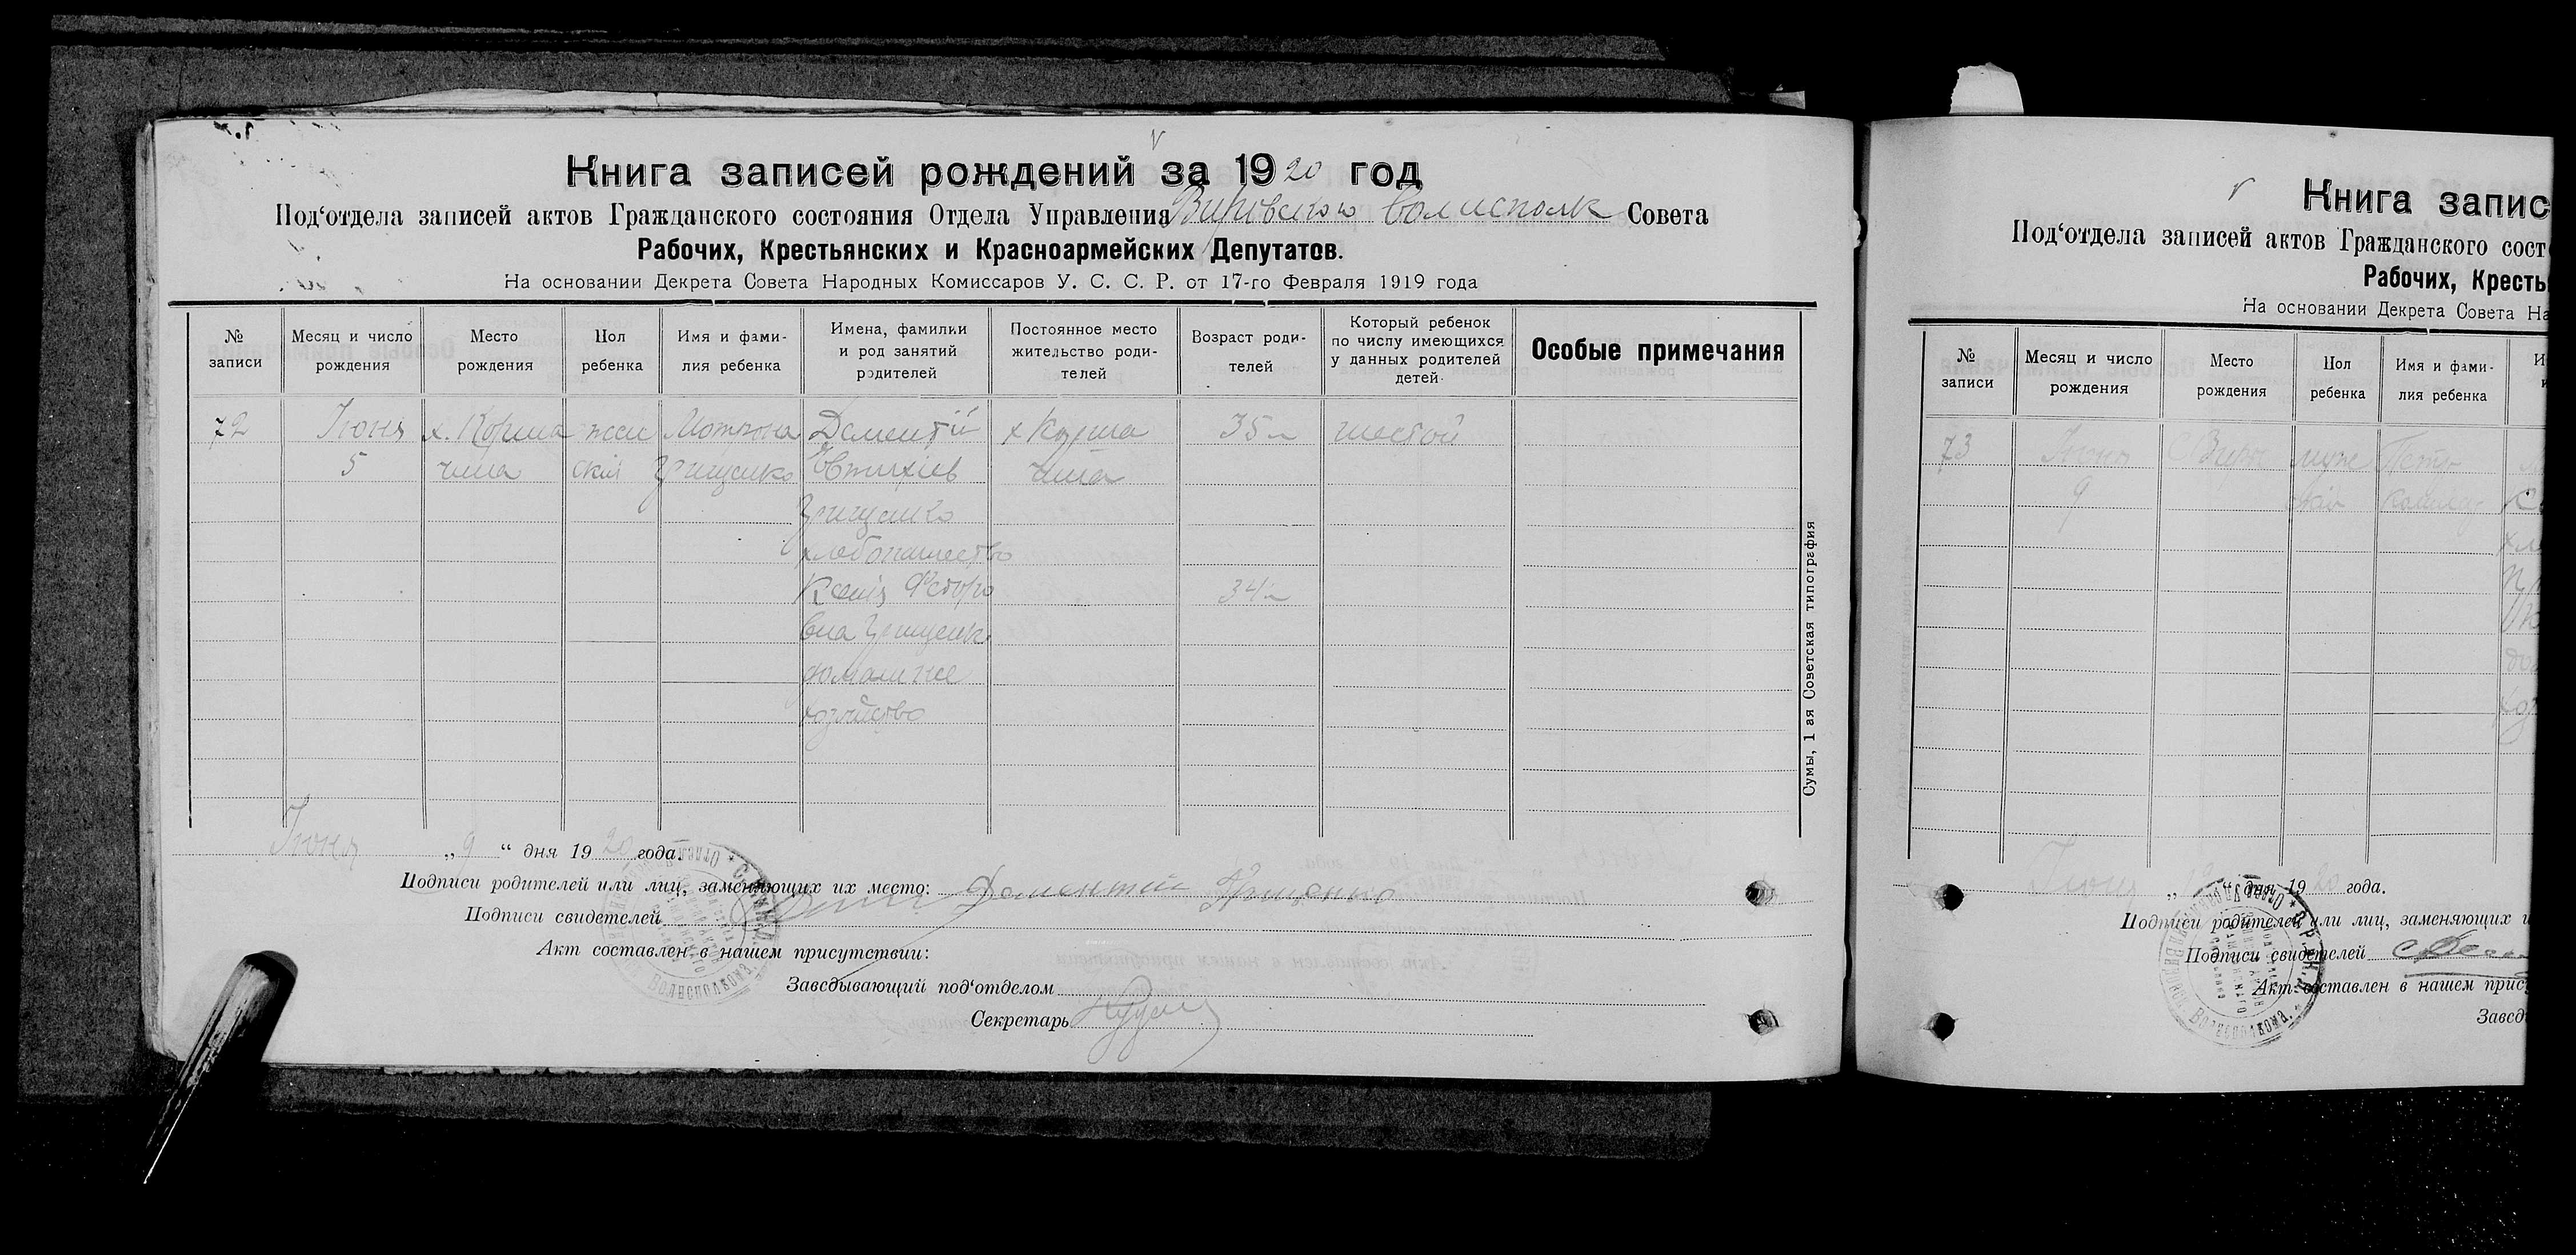 Книга записей рождений за 1920 год
Под‘отдела записей актов Гражданского состояния Отдела Управления Вировского Волисполк Совета
Рабочих, Крестьянских и Красноармейских Депутатов.
На основании Декрета Совета Народных Комиссаров У. С. С. Р. от 17-го Февраля 1919 года
№ записи
Месяц и число рождения
Место рождения
Пол ребенка
Имя и фами-
лия ребенка
Имена, фамилии
и род занятий
родителей
Постоянное место
жительство роди-
телей
Возраст роди-
телей
Который ребенок
по числу имеющихся
у данных родителей
детей.
Особые примечания
72 Июня жен Мотрона Дементий 35 шестой
5 ский Грищенко Евтихіев
Грищенко
хлебопашество
Ксенія Федоро 34
вна Грищенк.
домашнее
хозяйство
Сумы, 1 ая Советская типография
Июня „ 9 “ дня 1920 года.
Подписи родителей или лиц, заменяющих их место: Дементий Грищенко
Подписи свидетелей
Акт составлен в нашем присутствии:
Заведывающий под‘отделом
Секретарь
Книга запис
Под‘отдела записей актов Гражданского сост
Рабочих, Кресть
На основании Декрета Совета На
№ записи
Месяц и число рождения
Место рождения
Пол ребенка
Имя и фами-
лия ребенка
73 Июня муж
9
Июня „ “ дня 1920 года.
Подписи родителей или лиц, заменяющих и
Подписи свидетелей
Акт составлен в нашем прису
Завед